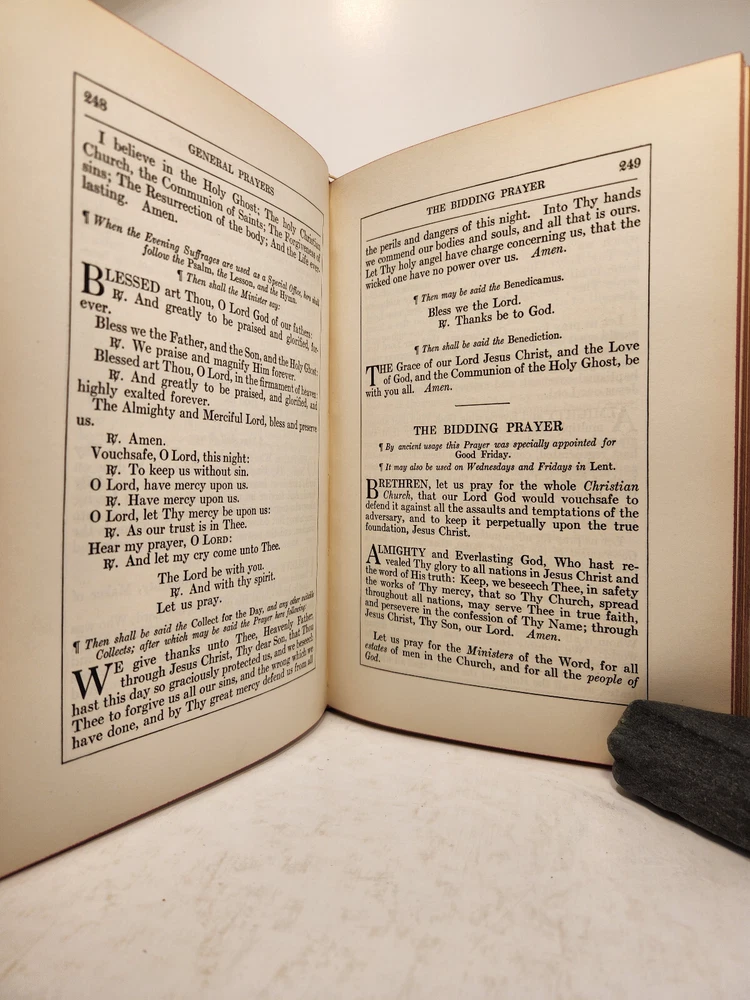 248
GENERAL PRAYERS
I believe in the Holy Ghost; The holy Christian
Church, the Communion of Saints; The Forgiveness of
sins; The Resurrection of the body; And the Life ever-
lasting. Amen.
¶ When the Evening Suffrages are used as a Special Office, here shall
follow the Psalm, the Lesson, and the Hymn.
¶ Then shall the Minister say:
BLESSED art Thou, O Lord God of our fathers:
℟. And greatly to be praised and glorified, for-
ever.
Bless we the Father, and the Son, and the Holy Ghost:
℟. We praise and magnify Him forever.
Blessed art Thou, O Lord, in the firmament of heaven:
℟. And greatly to be praised, and glorified, and
highly exalted forever.
The Almighty and Merciful Lord, bless and preserve
us.
℟. Amen.
Vouchsafe, O Lord, this night:
℟. To keep us without sin.
O Lord, have mercy upon us.
℟. Have mercy upon us.
O Lord, let Thy mercy be upon us:
℟. As our trust is in Thee.
Hear my prayer, O LORD:
℟. And let my cry come unto Thee.
The Lord be with you.
℟. And with thy spirit.
Let us pray.
¶ Then shall be said the Collect for the Day, and any other suitable
Collects; after which may be said the Prayer here following:
WE give thanks unto Thee, Heavenly Father,
through Jesus Christ, Thy dear Son, that Thou
hast this day so graciously protected us, and we beseech
Thee to forgive us all our sins, and the wrong which we
have done, and by Thy great mercy defend us from all
THE BIDDING PRAYER
249
the perils and dangers of this night. Into Thy hands
we commend our bodies and souls, and all that is ours.
Let Thy holy angel have charge concerning us, that the
wicked one have no power over us. Amen.
¶ Then may be said the Benedicamus.
Bless we the Lord.
℟. Thanks be to God.
¶ Then shall be said the Benediction.
THE Grace of our Lord Jesus Christ, and the Love
of God, and the Communion of the Holy Ghost, be
with you all. Amen.
THE BIDDING PRAYER
¶ By ancient usage this Prayer was specially appointed for
Good Friday.
¶ It may also be used on Wednesdays and Fridays in Lent.
BRETHREN, let us pray for the whole Christian
Church, that our Lord God would vouchsafe to
defend it against all the assaults and temptations of the
adversary, and to keep it perpetually upon the true
foundation, Jesus Christ.
ALMIGHTY and Everlasting God, Who hast re-
vealed Thy glory to all nations in Jesus Christ and
the word of His truth: Keep, we beseech Thee, in safety
the works of Thy mercy, that so Thy Church, spread
throughout all nations, may serve Thee in true faith,
and persevere in the confession of Thy Name; through
Jesus Christ, Thy Son, our Lord. Amen.
Let us pray for the Ministers of the Word, for all
estates of men in the Church, and for all the people of
God.